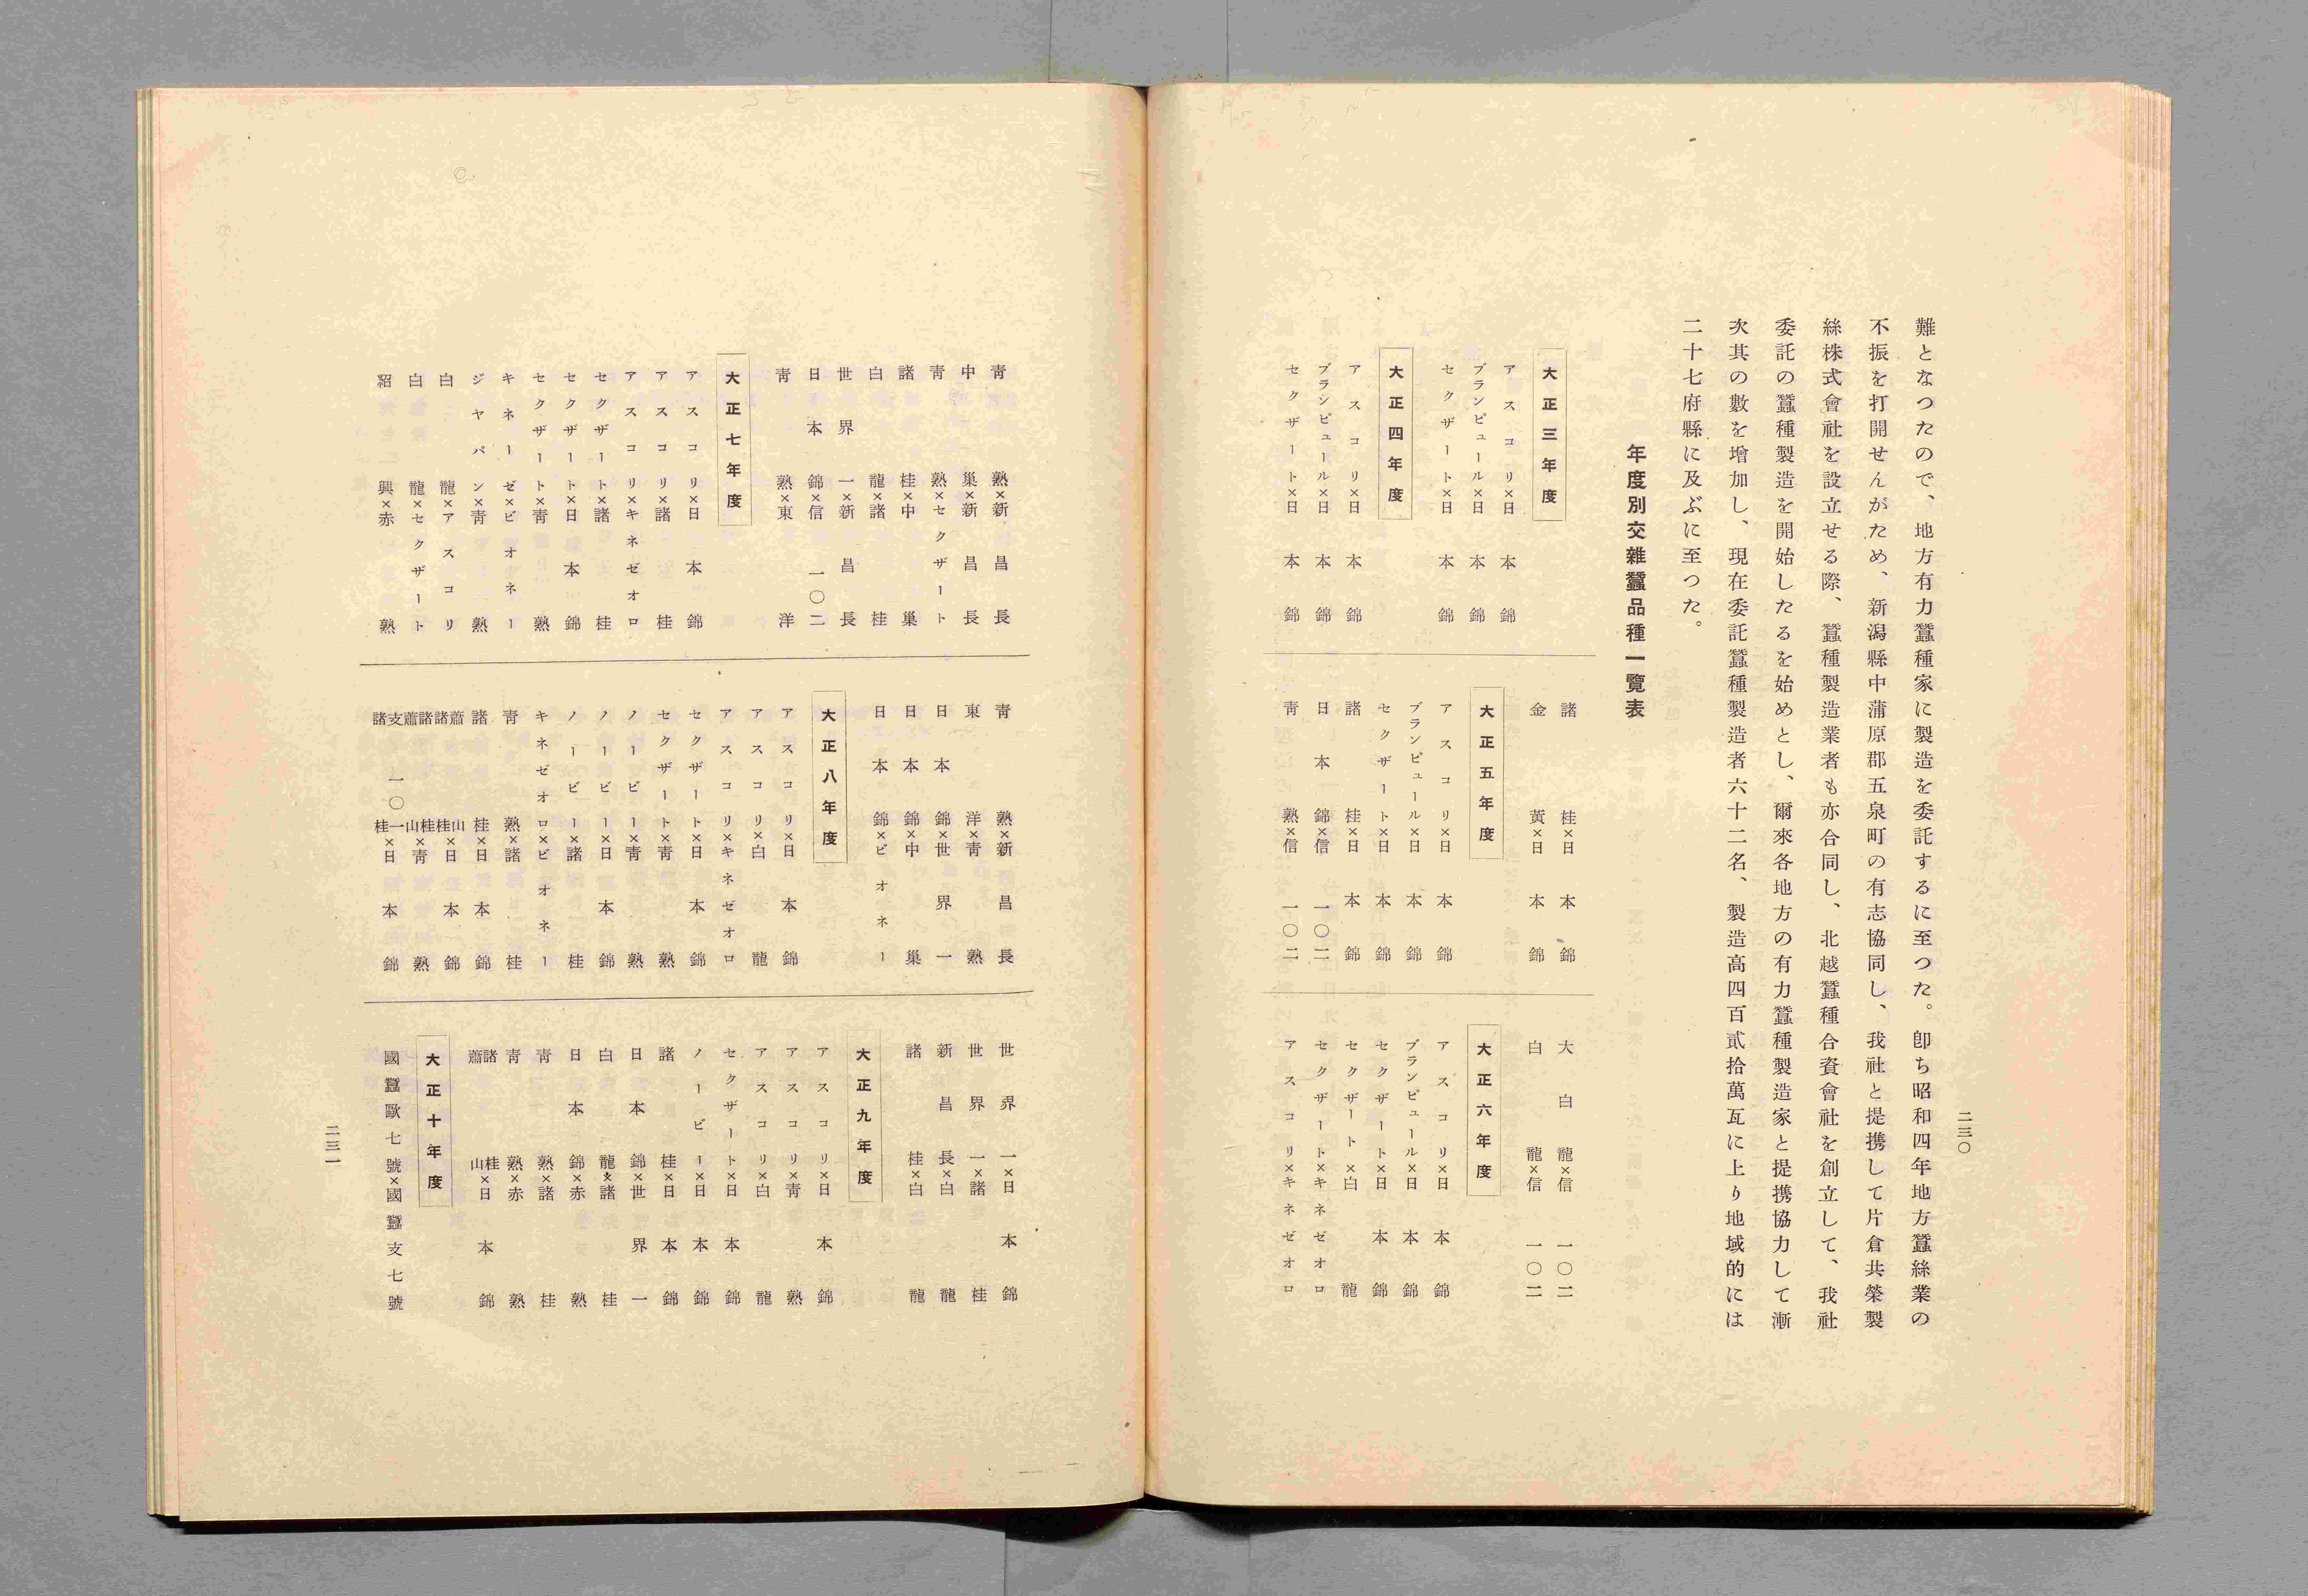 難となつたので、地方有力蠶種家に製造を委託するに至つた。卽ち昭和四年地方蠶絲業の
不振を打開せんがため、新潟縣中蒲原郡五泉町の有志協同し、我社と提携して片倉共榮製
絲株式會社を設立せる際、蠶種製造業者も亦合同し、北越蠶種合資會社を創立して、我社
委託の蠶種製造を開始したるを始めとし、爾來各地方の有力蠶種製造家と提携協力して漸
次其の數を增加し、現在委託蠶種製造者六十二名、製造高四百貳拾萬瓦に上り地域的には
二十七府縣に及ぶに至つた。
年度別交雜蠶品種一覽表
大正三年度
アスコリ×日本錦
ブランピュール×日本錦
セクザート×日本錦
大正四年度
アスコリ×日本錦
ブランピュール×日本錦
セクザート×日本錦
諸桂×日本錦
金黃×日本錦
大正五年度
アスコリ×日本錦
ブランピュール×日本錦
セクザート×日本錦
諸桂×日本錦
日本錦×信一〇二
靑熟×信一〇二
大白龍×信一〇二
白龍×信一〇二
大正六年度
アスコリ×日本錦
ブランピュール×日本錦
セクザート×日本錦
セクザート×白龍
セクザート×キネゼオロ
アスコリ×キネゼオロ
二三〇
靑熟×新昌長
中巢×新昌長
靑熟×セクザート
諸桂×中巢
白龍×諸桂
世界一×新昌長
日本錦×信一〇二
靑熟×東洋
大正七年度
アスコリ×日本錦
アスコリ×諸桂
アスコリ×キネゼオロ
セクザート×諸桂
セクザート×日本錦
セクザート×靑熟
キネーゼ×ビオネー
ジヤパン×靑熟
白龍×アスコリ
白龍×セクザート
紹興×赤熟
靑熟×新昌長
東洋×靑熟
日本錦×世界一
日本錦×中巢
日本錦×ビオネー
大正八年度
アスコリ×日本錦
アスコリ×白龍
アスコリ×キネゼオロ
セクザート×日本錦
セクザート×靑熟
ノービー×靑熟
ノービー×日本錦
ノービー×諸桂
キネゼオロ×ビオネー
靑熟×諸桂
諸桂×日本錦
諸桂蕭山×日本錦
蕭山諸桂×靑熟
諸桂支一〇一×日本錦
世界一×日本錦
世界一×諸桂
新昌長×白龍
諸桂×白龍
大正九年度
アスコリ×日本錦
アスコリ×靑熟
アスコリ×白龍
セクザート×日本錦
ノービー×日本錦
諸桂×日本錦
日本錦×世界一
白龍×諸桂
日本錦×赤熟
靑熟×諸桂
靑熟×赤熟
蕭山諸桂×日本錦
大正十年度
國蠶歐七號×國蠶支七號
二三一